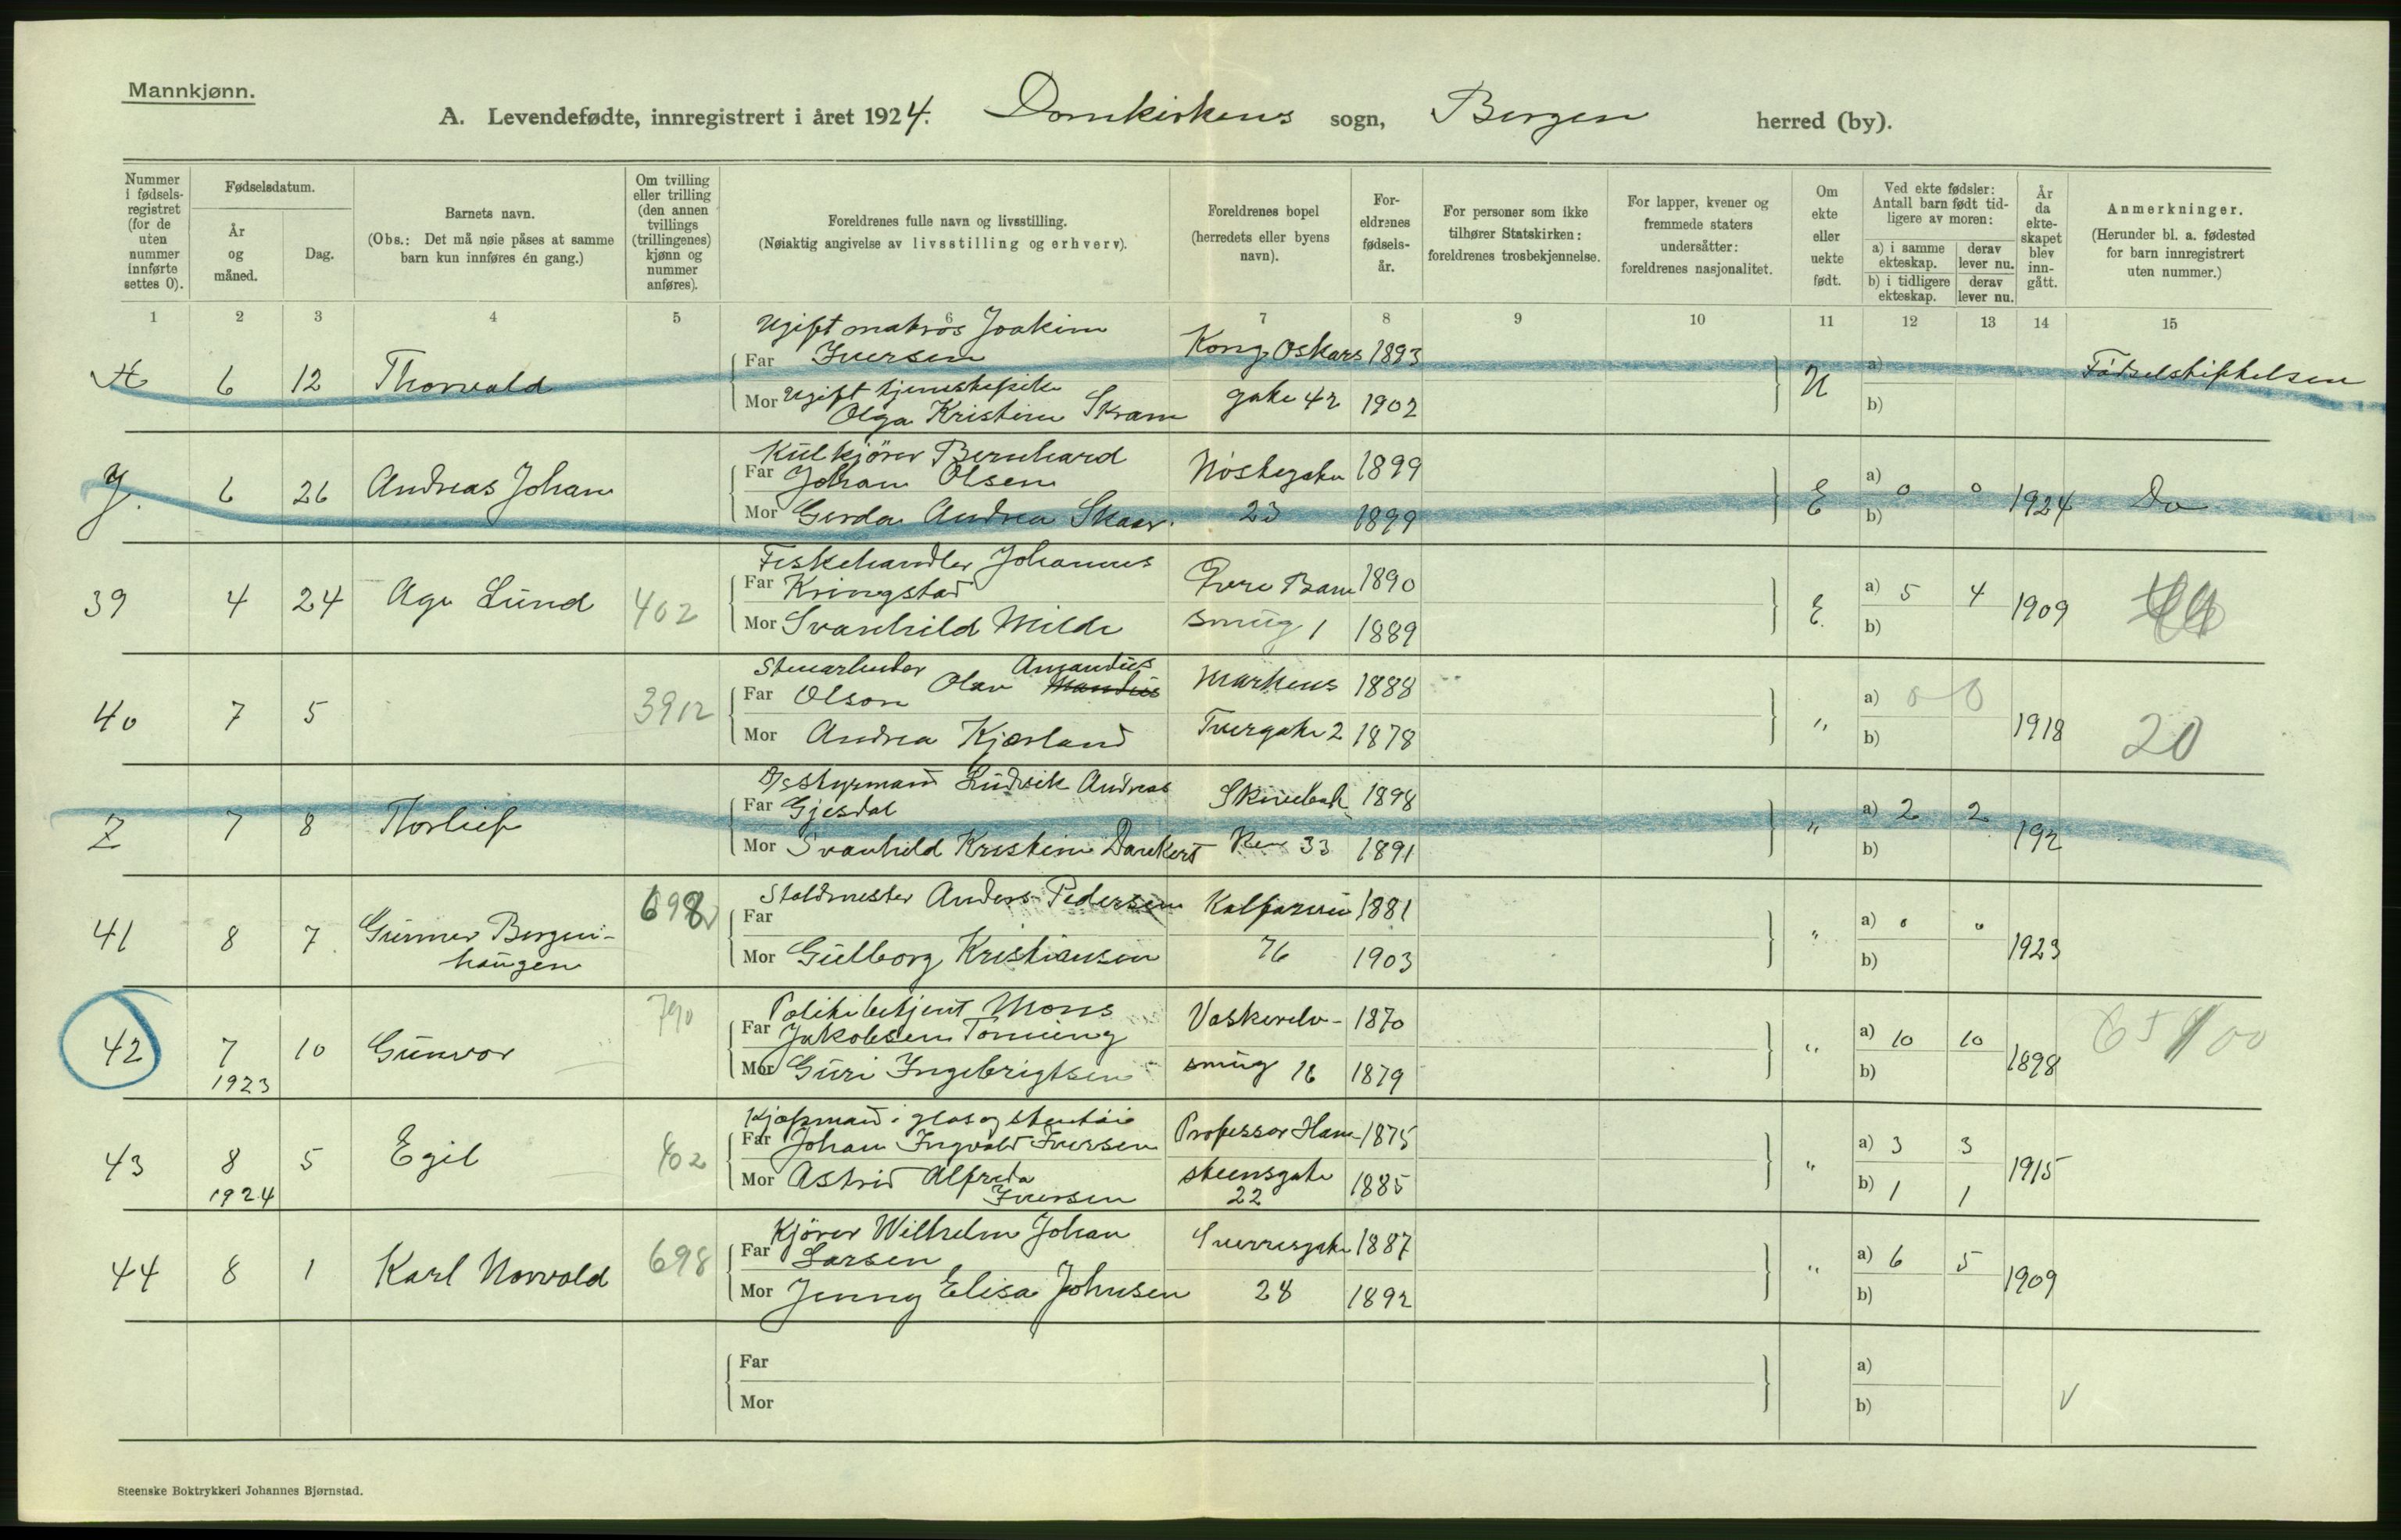 Mannkjønn.
A. Levendefødte, innregistrert i året 1924. Domkirkens sogn, Bergen herred (by).
Nummer i fødsels-registret (for de uten nummer innførte settes 0).
Fødselsdatum.
År og måned.
Dag.
Barnets navn.
(Obs.: Det må nøie påses at samme barn kun innføres én gang.)
Om tvilling eller trilling (den annen tvillings (trillingenes) kjønn og nummer anføres).
Foreldrenes fulle navn og livsstilling.
(Nøiaktig angivelse av livsstilling og erhverv).
Foreldrenes bopel (herredets eller byens navn).
For-eldrenes fødsels-år.
For personer som ikke tilhører Statskirken: foreldrenes trosbekjennelse.
For lapper, kvener og fremmede staters undersåtter: foreldrenes nasjonalitet.
Om ekte eller uekte født.
Ved ekte fødsler: Antall barn født tid-ligere av moren:
a) i samme ekteskap.
derav lever nu.
b) i tidligere ekteskap.
derav lever nu.
År da ekte-skapet blev inn-gått.
Anmerkninger.
(Herunder bl. a. fødested for barn innregistrert uten nummer.)
1 2 3 4 5 6 7 8 9 10 11 12 13 14 15
Ugift matros Joakim
6 12 Thorvald Far Iversen Kong Oskars 1893 U a) Fødselsstiftelsen
Mor Ugift tjenestepike Olga Kristine Skram gate 42 1902 b)
Kulkjörer Bernhard
6 26 Andreas Johan Far Johan Olsen Nöstegaten 1899 E a) 0 0 1924 Do
Mor Gerda Andrea Skaar. 23 1899 b)
Fiskehandler Johannes
39 4 24 Age Lund 402 Far Kringstad Övre Bam 1890 E. a) 5 4 1909
Mor Svanhild Milde smug 1 1889 b)
Amandus
40 7 5 3912 Far Olson Olav Mandius Markens 1888 " a) 0 0 1918 20
Mor Andrea Kjærland Tvergate 2 1878 b)
Styrmand Ludvik Andreas
7 8 Thorleif Far Gjesdal 1898 " a) 2 2 192
Mor Svanhild Kristine Dankert 33 1891 b)
Staldmester Anders Pedersen
41 8 7 Gunnar Bergen-haugen 698 Far Kalfarvei 1881 " a) 0 0 1923
Mor Gulborg Kristiansen 76 1903 b)
Politibetjent Mons
42 7 1923 10 Gunvor 790 Far Jakobsen Tonning Vaskerelv- 1870 " a) 10 10 1898
Mor Guri Ingebrigtsen smug 16 1879 b)
Kjøpmand i glas og stentöi
43 8 1924 5 Egil 402 Far Johan Ingvald Iversen Professor Han- 1875 " a) 3 3 1915
Mor Astrid Alfreda Iversen steensgate 22 1885 b) 1 1
Kjörer Wilhelm Johan
44 8 1 Karl Norvald 698 Far Larsen Sverresgate 1887 " a) 6 5 1909
Mor Jenny Elisa Johnsen 28 1892 b)
Far a)
Mor b)
Steenske Boktrykkeri Johannes Bjørnstad.